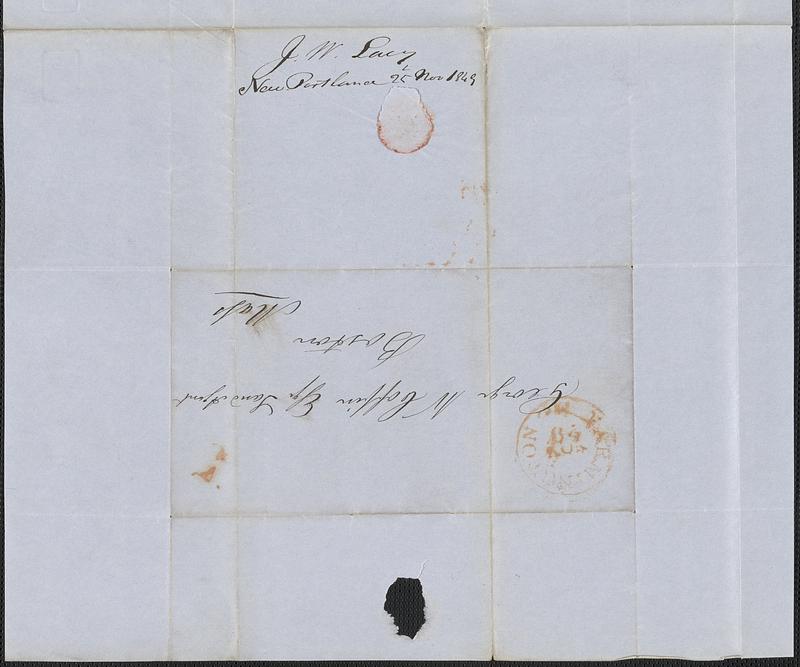 J. W. Lacy
New Portland 25 Nov 1849
George W Coffin Esqr Land Agent
Boston
Mass